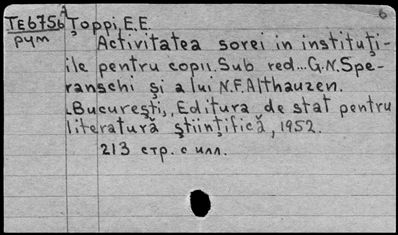 6
TE6756 A Țoppi, E.E.
рум Activitatea sorei in instituți-
ile pentru copii. Sub red... G.N.Spe-
ranschi și a lui N.F.Althauzen.
București, Editura de stat pentru
literatură științifică, 1952.
213 стр. с илл.